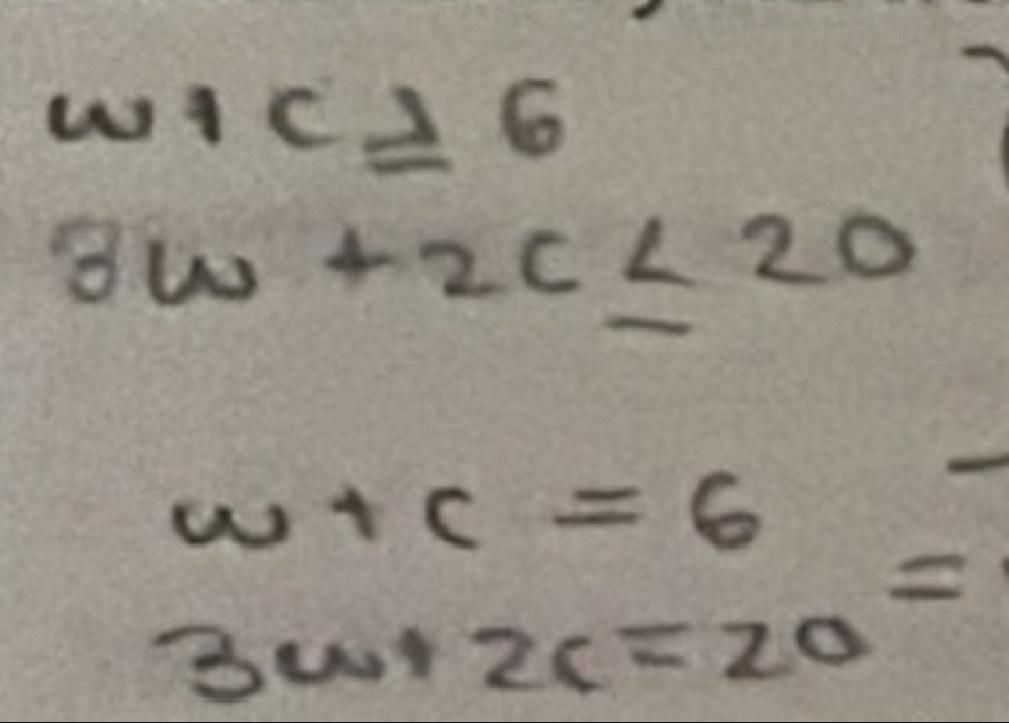 w + c ≥ 6
3w + 2c ≤ 20
w + c = 6
3w + 2c = 20